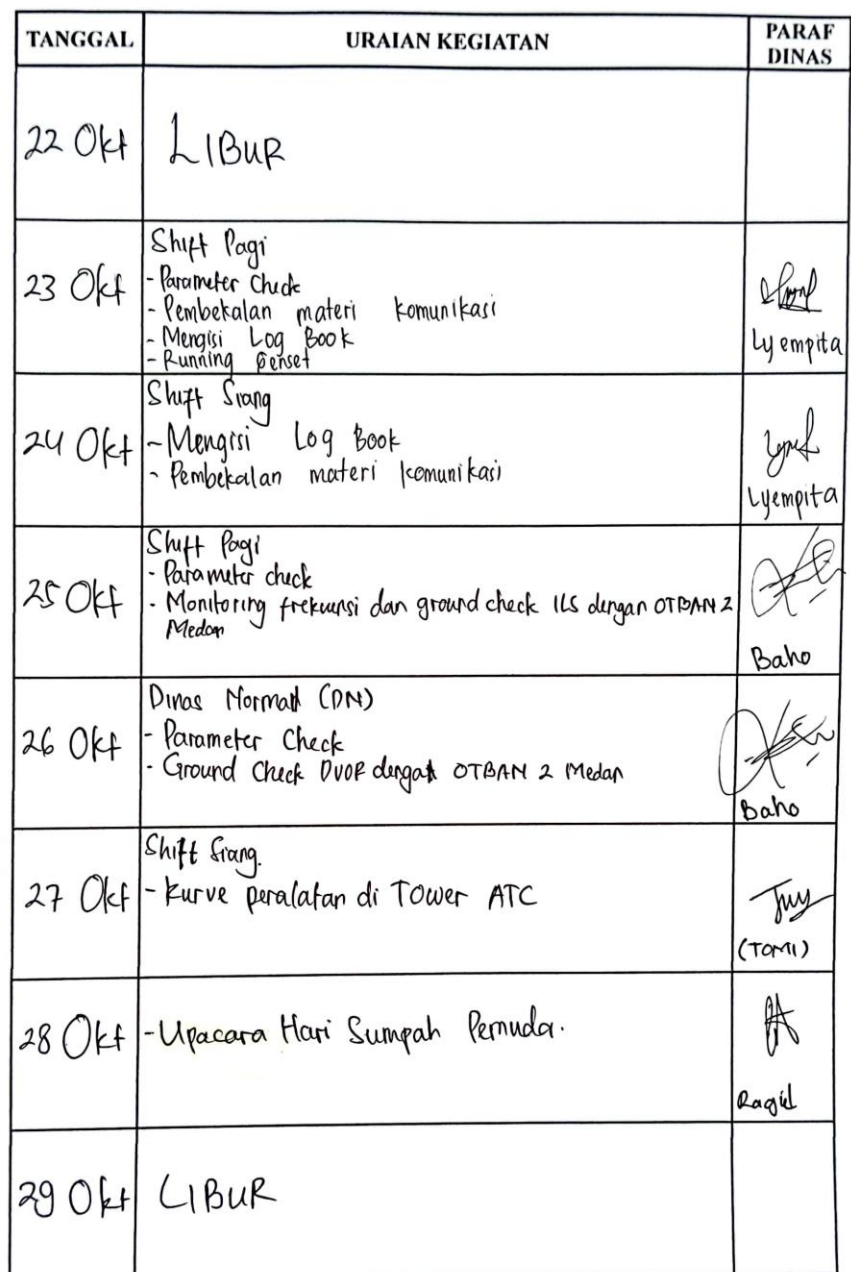 TANGGAL URAIAN KEGIATAN PARAF DINAS
22 Okt LIBUR
Shift Pagi
23 Okt
- Parameter Check
- Pembekalan materi komunikasi
- Mengisi Log Book
- Running Genset
Lyempita
Shift Siang
24 Okt
- Mengisi Log Book
- Pembekalan materi komunikasi
Lyempita
Shift Pagi
25 Okt
- Parameter check
- Monitoring frekuensi dan ground check ILS dengan OTBAN 2
Medan
Baho
Dinas Normal (DN)
26 Okt
- Parameter Check
- Ground Check DVOR dengan OTBAN 2 Medan
Baho
Shift Siang.
27 Okt
- Kurve peralatan di Tower ATC
(TOMI)
28 Okt
- Upacara Hari Sumpah Pemuda.
Ragil
29 Okt LIBUR